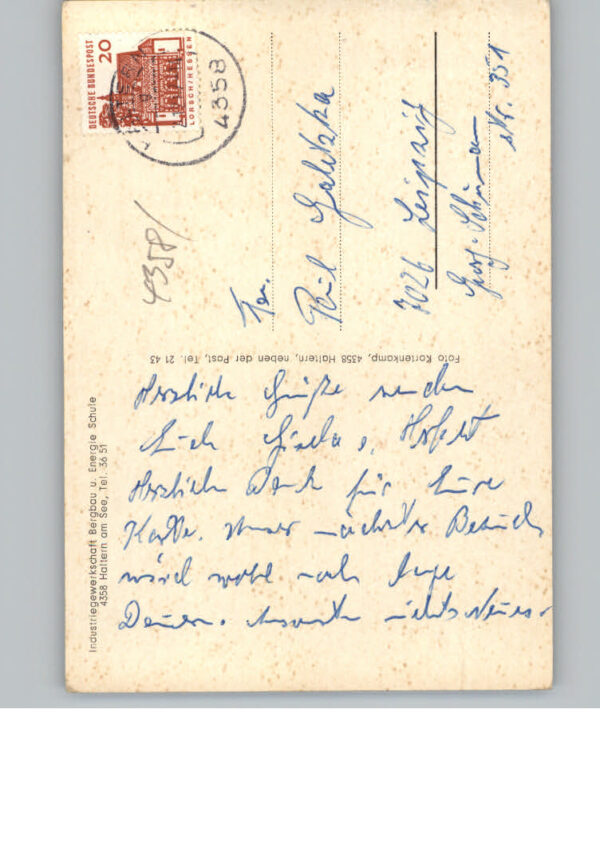 DEUTSCHE BUNDESPOST
20
LORSCH/HESSEN
4358
4358/
Fam.
Paul Galitzka
7026 Leipzig
Georg-Schumann
Str. 351
Foto Kortenkamp, 4358 Haltern, neben der Post, Tel. 21 43
Industriegewerkschaft Bergbau u. Energie Schule
4358 Haltern am See, Tel. 36 51
Herzliche Grüße senden
Euch Gisela u. Horst
Herzlichen Dank für Eure
Karte. Unser nächster Besuch
wird wohl noch lange
Dauern. Ansonsten nichts Neues.